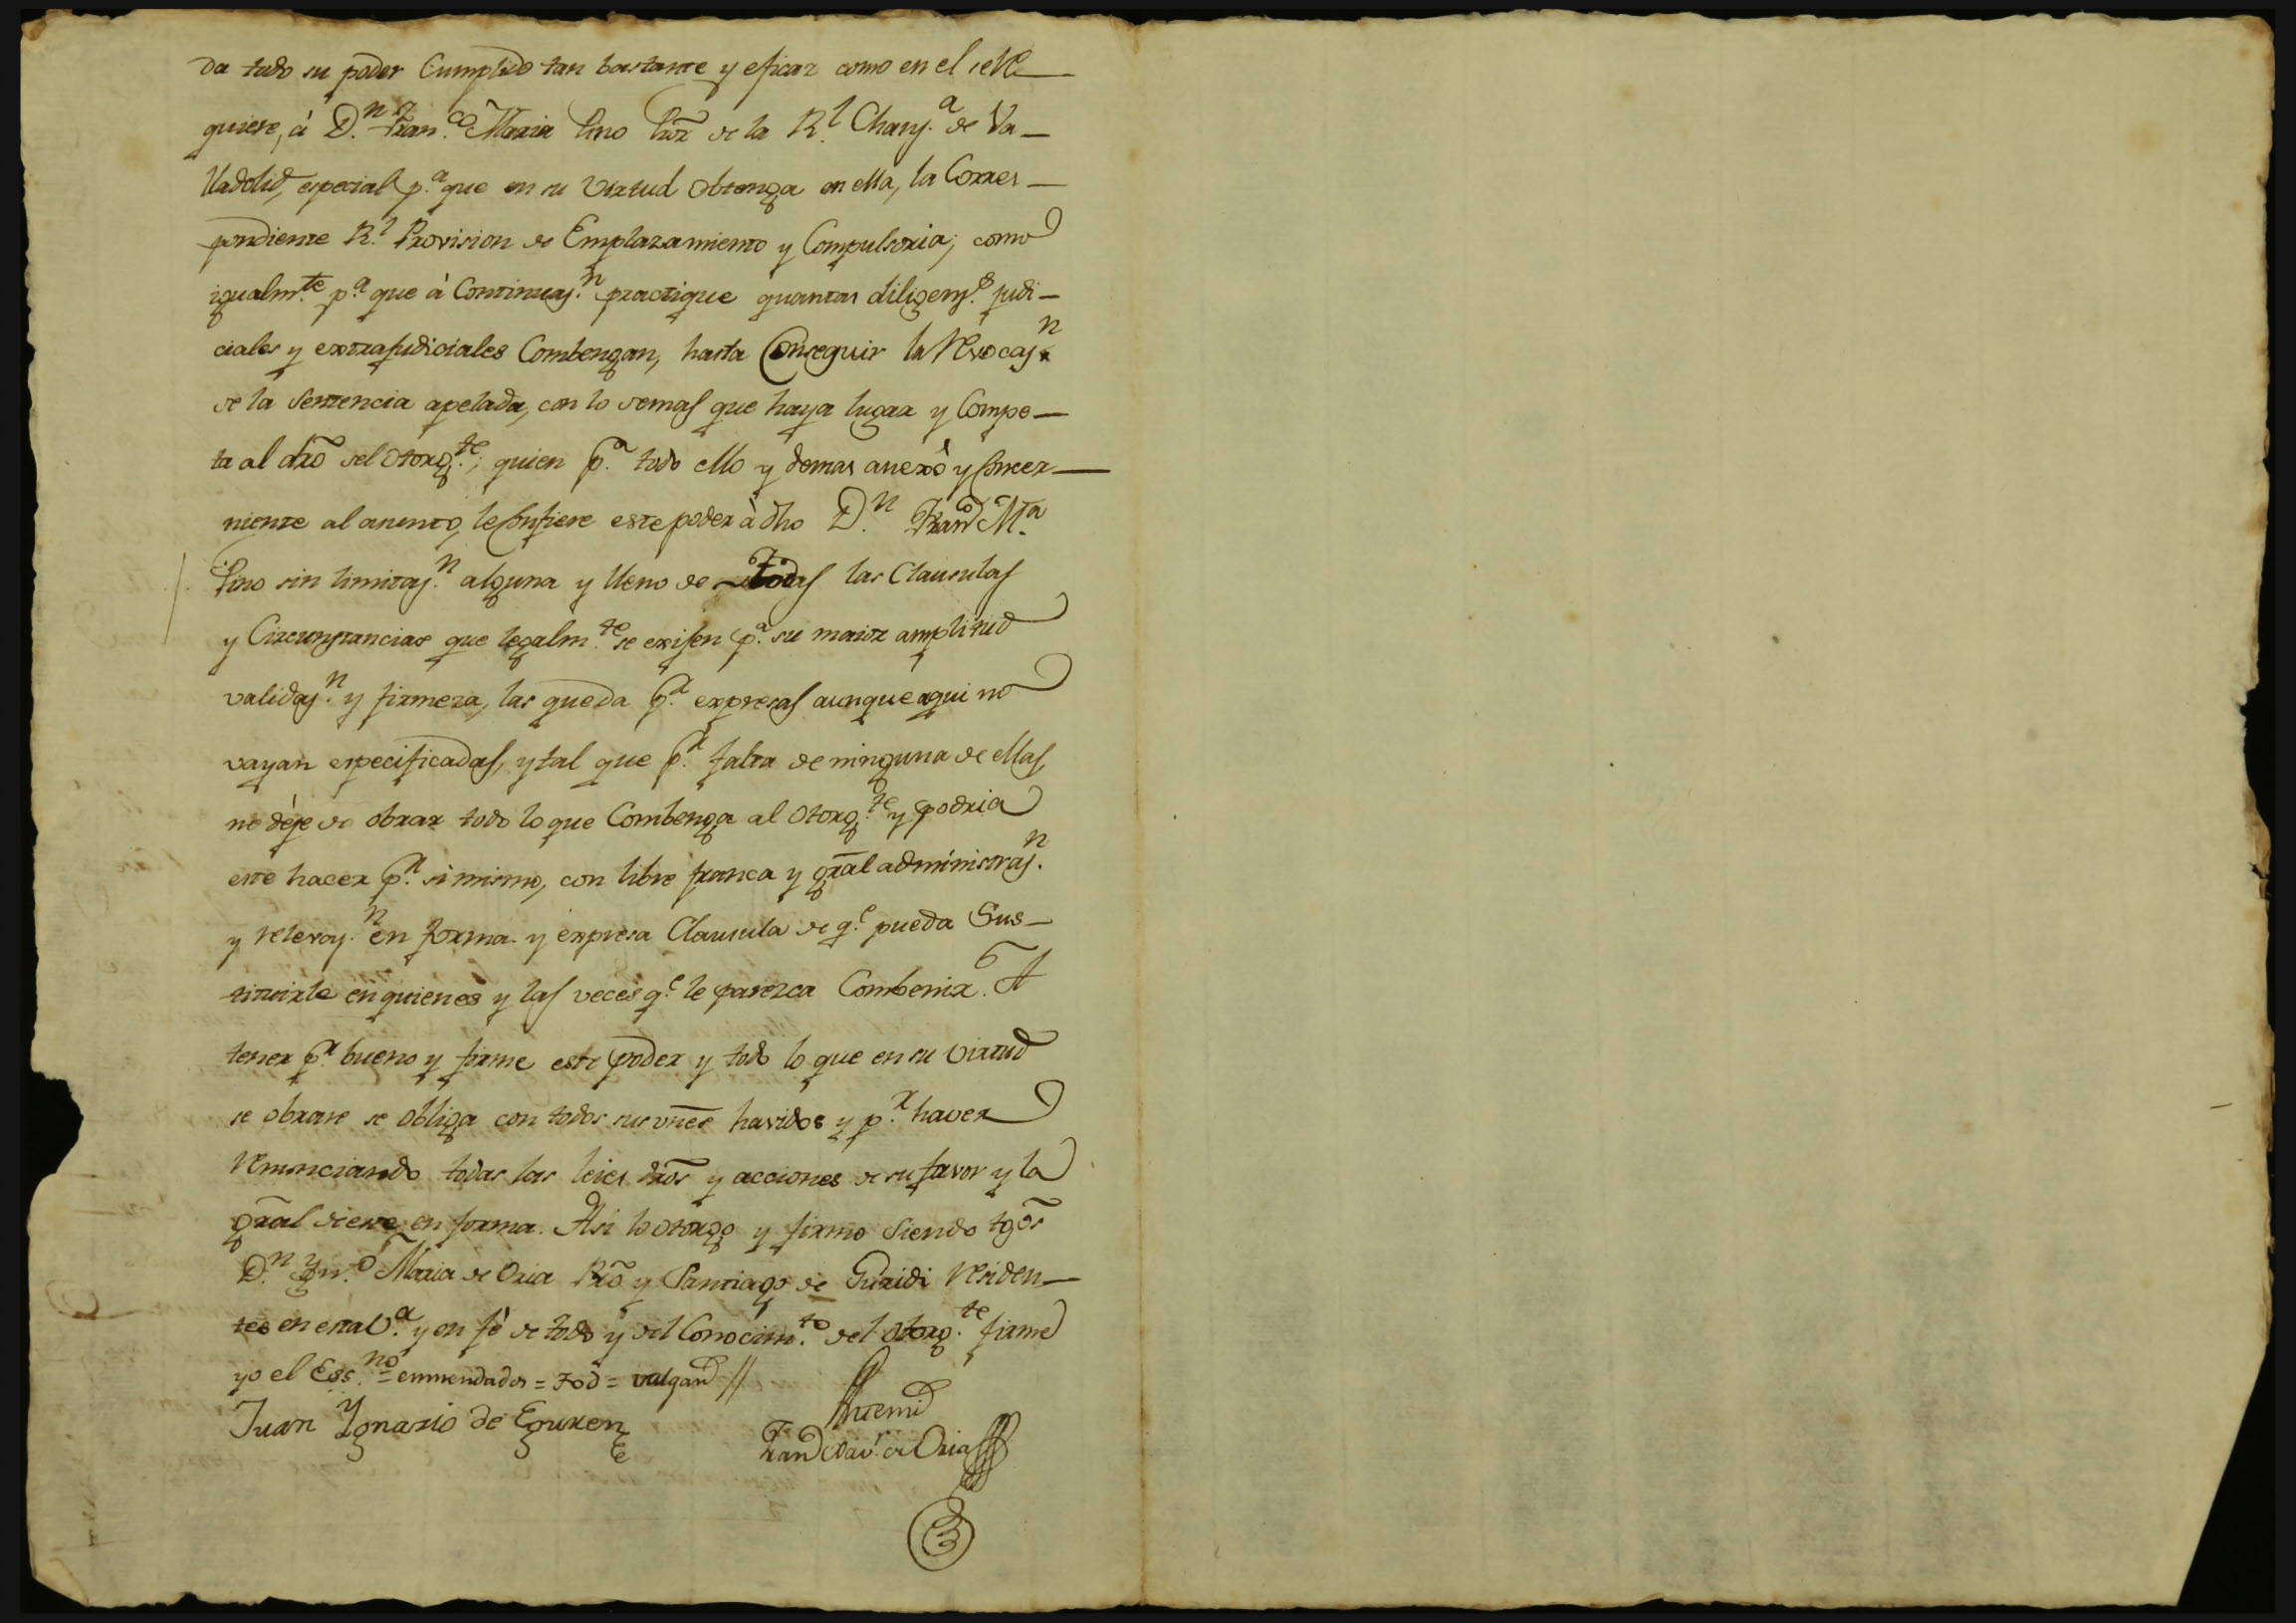 da todo su poder Cumplido tan bastante y eficaz como en el se Re
quiere, á D.n Fran.co Maria Pino Pror de la R.l Chanz.a de Va-
lladolid, especial p.a que en su Virtud Obtenga en ella, la Corres-
pondiente R.l Provision de Emplazamiento y Compulsoria; como
igualm.te p.a que à Continuaz.n practique quantas diligenz.s judi-
ciales y extrajudiciales Combengan, hasta Conseguir la Revocaz.n
de la Sentencia apelada, con lo demas que haya lugar y Compe-
ta al dro del Otorg.te; quien p.a todo ello y demas anexò y Concer-
niente al asunto, le Confiere este poder à dho D.n Franco M.a
Pino sin limitaz.n alguna y lleno de todas las Clausulas
y Circunstancias que legalm.te se exijen p.a su maior amplitud
validaz.n y firmeza, las que da p.r expresas aunque aqui no
vayan especificadas, y tal que p.r falta de ninguna de ellas,
no dèje de obrar todo lo que Combenga al Otorg.te y podria
este hacer p.r si mismo, con libre franca y gral administraz.n
y relevaz.n en forma y expresa Clausula de q.e pueda Sus-
tituirle en quienes y las veces q.e le parezca Combenir. A
tener p.r bueno y firme este poder y todo lo que en su virtud
se obrare se obliga con todos sus vnes havidos y p.r haver
Renunciando todas las leies dros y acciones de su favor y la
gral de ere en forma. Asi lo otorgo y firmo Siendo tgos
D.n Jn.o Maria de Oria Pro y Santiago de Guridi Residen-
tes en esta V.a y en fè de todo y del Conocim.to del Otorg.te firmé
yo el Ess.no = enmendados = Tod = valgan //
Juan Ygnazio de Eguren
Antemi
Franco Xav.r de Oria